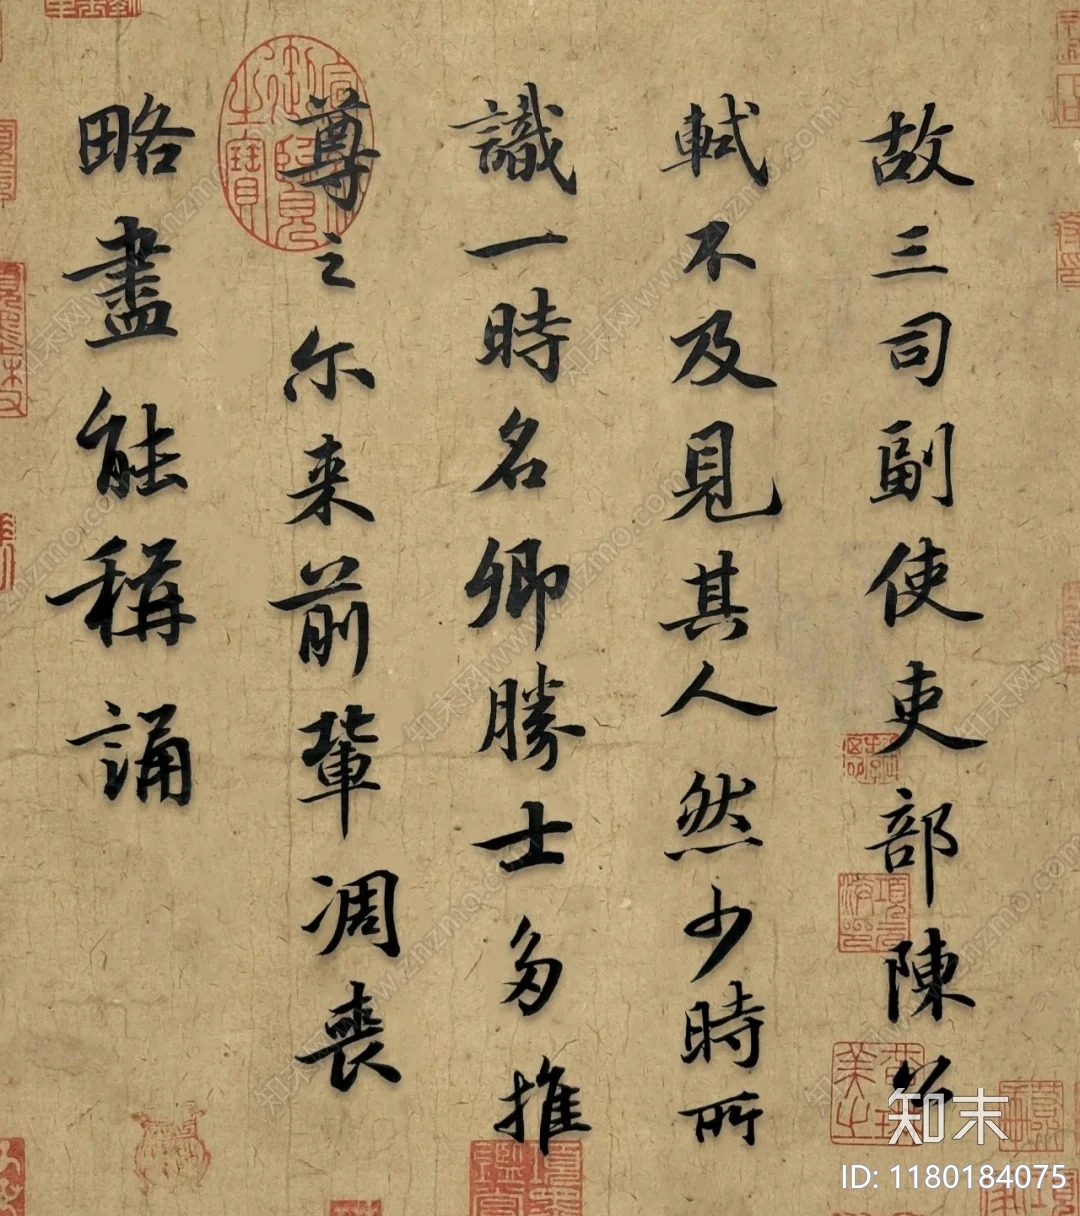 故三司副使吏部陳公
軾不及見其人然少時所
識一時名卿勝士多推
尊之尔来前輩凋喪
略盡能稱誦
知末
ID: 1180184075
知末网www.znzmo.com